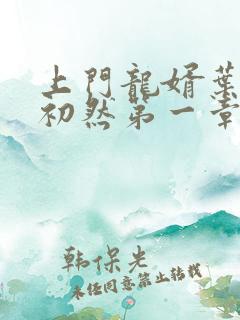 上門龍婿葉
初然第一章
韩保光
未经同意禁止转载